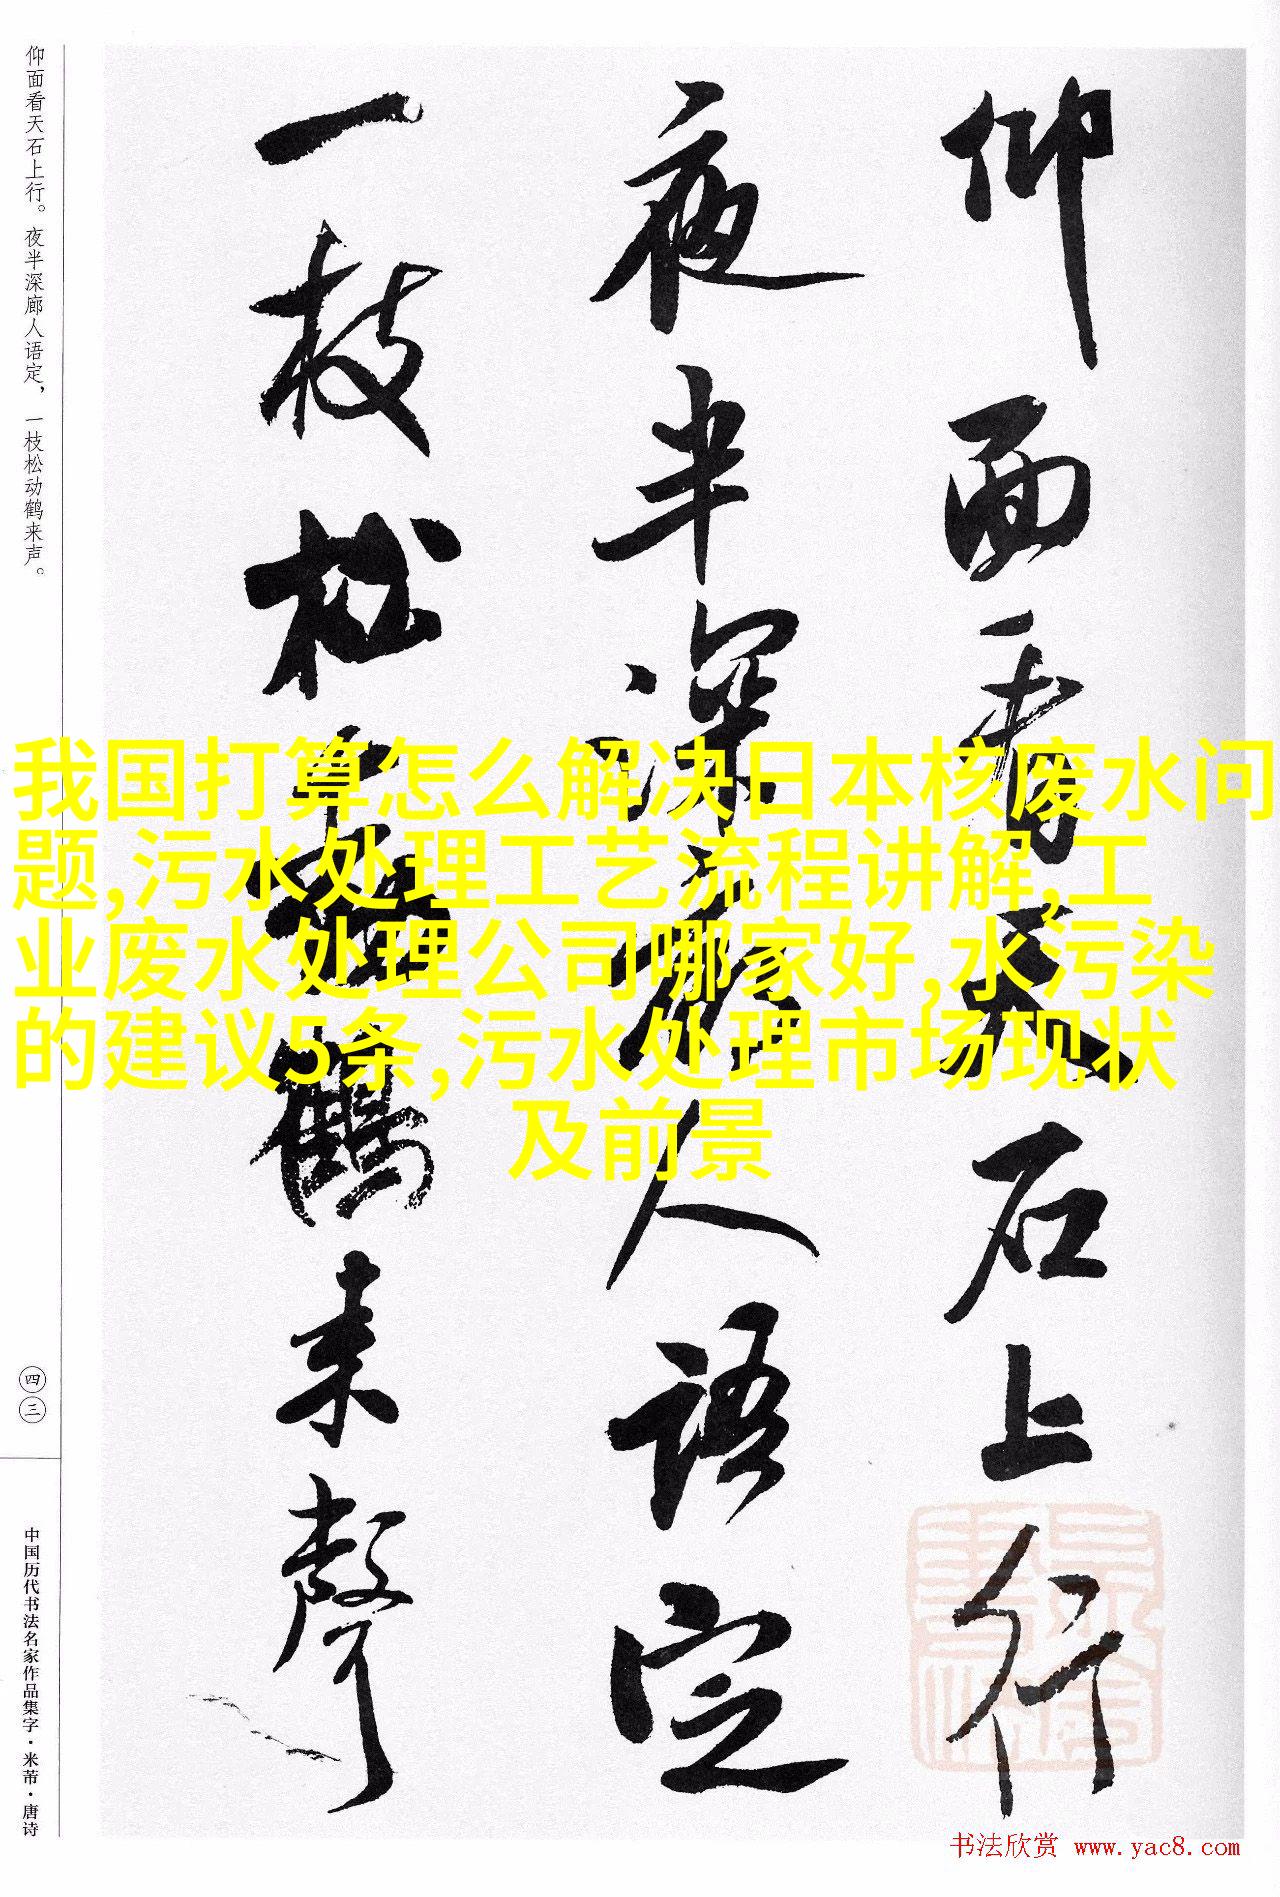 仰面看天石上行
夜半深廊人语定
一枝松动鹤来声
仰面看天石上行。夜半深廊人语定，一枝松动鹤来声。
四三
中国历代书法名家作品集字·米芾·唐诗
我国打算怎么解决日本核废水问
题,污水处理工艺流程讲解,工
业废水处理公司哪家好,水污染
的建议5条,污水处理市场现状
及前景
书法欣赏 www.yac8.com